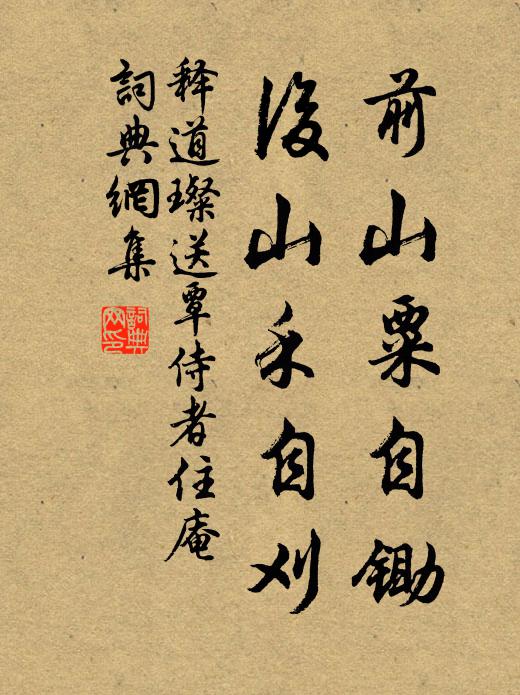 前山粟自锄
後山禾自刈
释道璨送覃侍者住庵
詞典網集
詞典网印